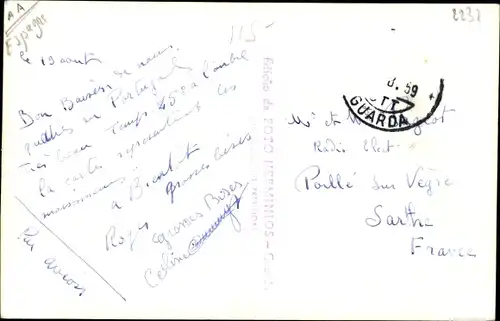 AA
Espagne
2232
115-
le 19 août
Bon Baisers de nous
quatres en Portugal
Très beau temps 45° a l'ombre
la carte représentant les
moissonneurs
a Bientôt
grosses bises
Roger
grosses Bises
Celine
Par avion
8.59
CTT
GUARDA
Mr et M
Radio Elect
Poillé sur Vègre
Sarthe
France